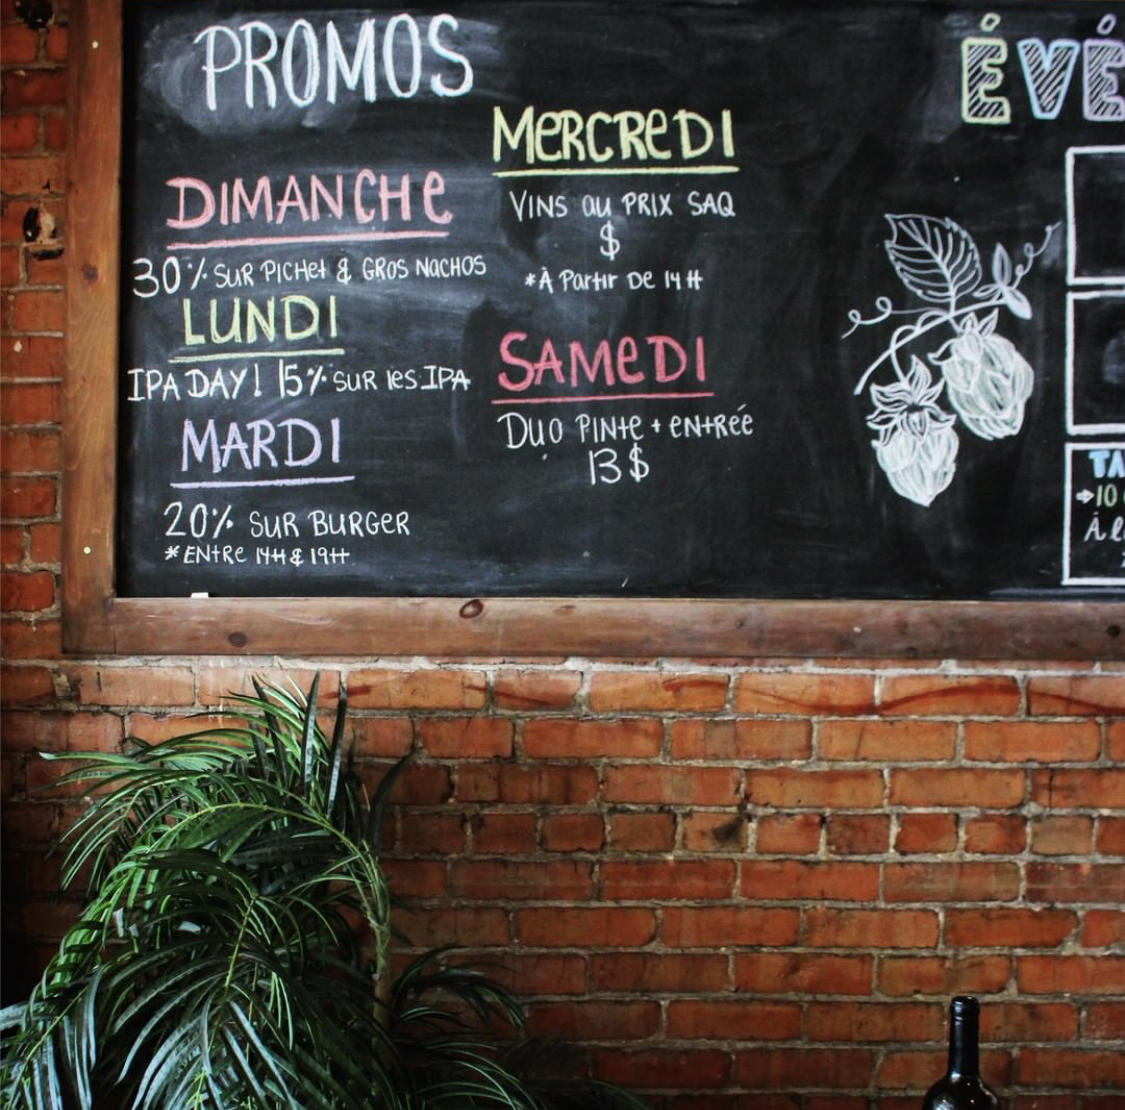 PROMOS
DIMANCHE
30% SUR PICHET & GROS NACHOS
LUNDI
IPA DAY! 15% SUR les IPA
MARDI
20% SUR BURGER
*ENTRE 14H & 19H
MERCREDI
VINS au PRIX SAQ
$
*À Partir DE 14H
SAMEDI
DUO PINTE + ENTRÉE
13$
ÉVÉ
TA
⇒10
À l